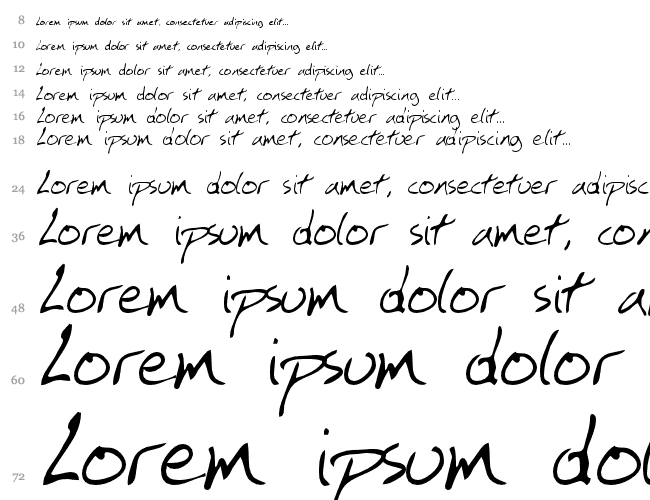 8 Lorem ipsum dolor sit amet, consectetuer adipiscing elit...
10 Lorem ipsum dolor sit amet, consectetuer adipiscing elit...
12 Lorem ipsum dolor sit amet, consectetuer adipiscing elit...
14 Lorem ipsum dolor sit amet, consectetuer adipiscing elit...
16 Lorem ipsum dolor sit amet, consectetuer adipiscing elit...
18 Lorem ipsum dolor sit amet, consectetuer adipiscing elit...
24 Lorem ipsum dolor sit amet, consectetuer adipisc
36 Lorem ipsum dolor sit amet, con
48 Lorem ipsum dolor sit a
60 Lorem ipsum dolor
72 Lorem ipsum dol